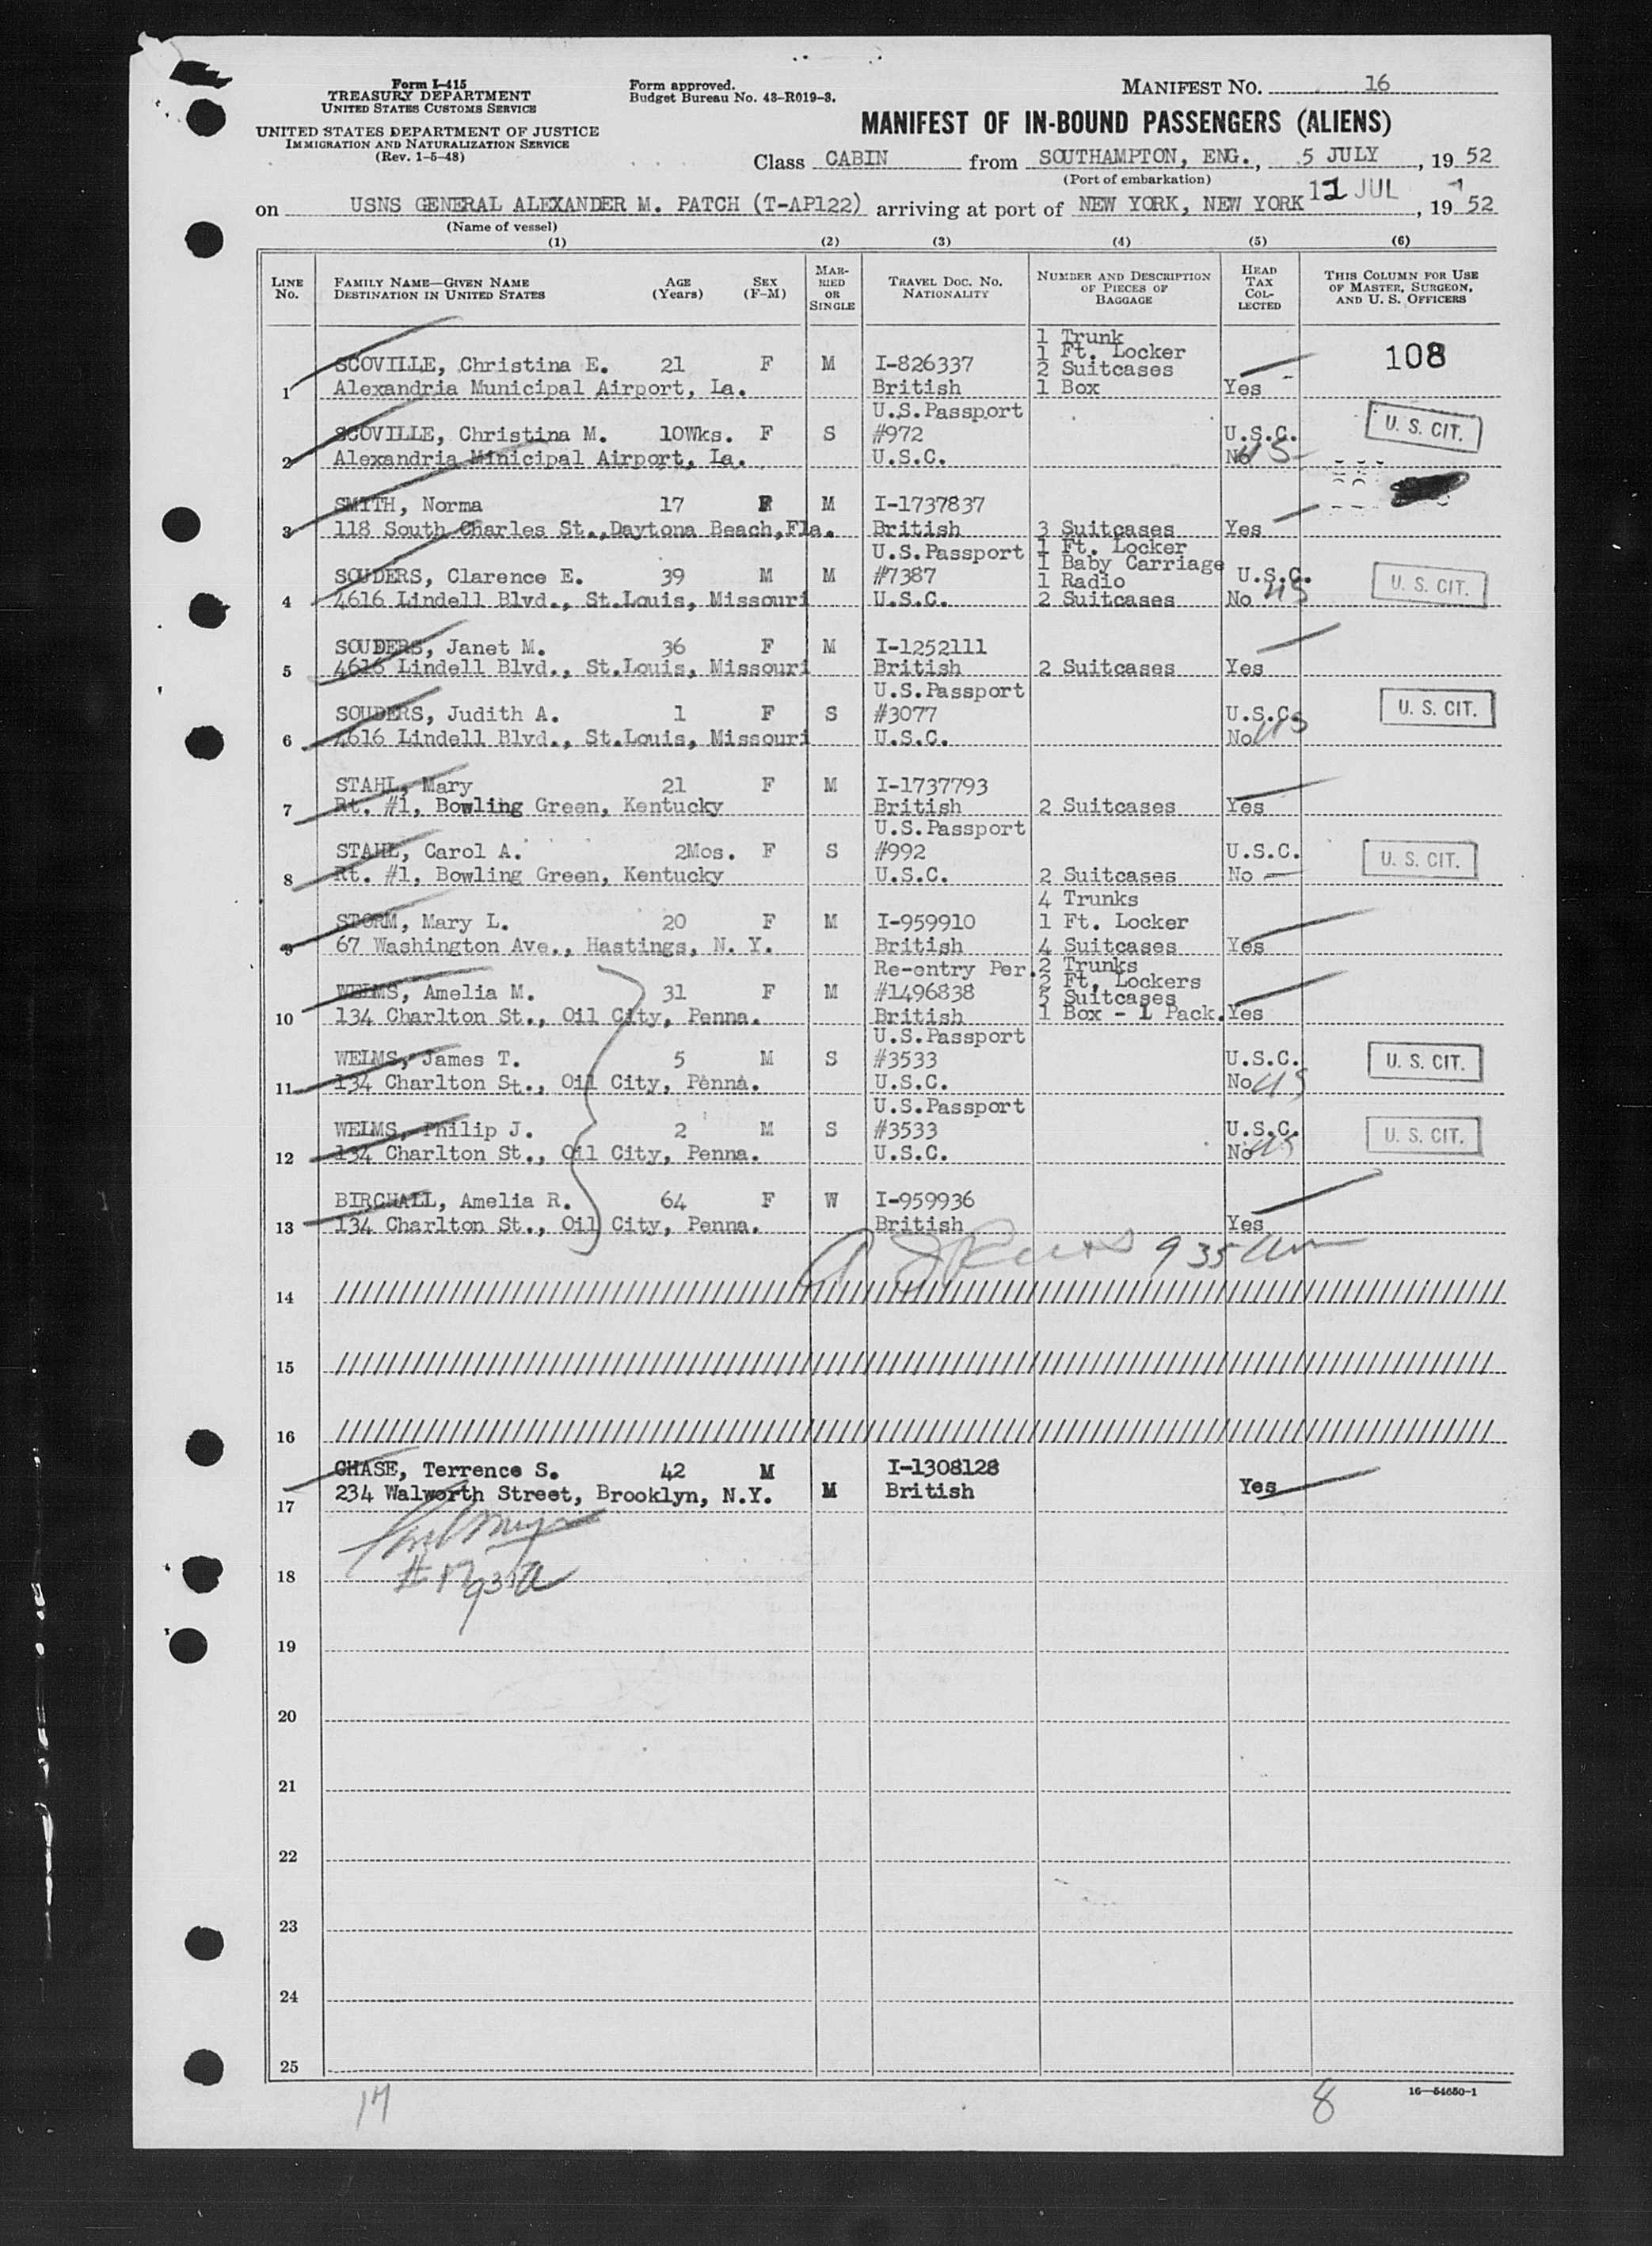 Form I-415
TREASURY DEPARTMENT
UNITED STATES CUSTOMS SERVICE
UNITED STATES DEPARTMENT OF JUSTICE
IMMIGRATION AND NATURALIZATION SERVICE
(Rev. 1-5-48)
Form approved.
Budget Bureau No. 43-R019-3.
MANIFEST NO. 16
MANIFEST OF IN-BOUND PASSENGERS (ALIENS)
Class CABIN from SOUTHAMPTON, ENG., 5 JULY, 19 52
(Port of embarkation)
on USNS GENERAL ALEXANDER M. PATCH (T-AP122) arriving at port of NEW YORK, NEW YORK JUL, 19 52
(Name of vessel)
(1) (2) (3) (4) (5) (6)
LINE No. FAMILY NAME—GIVEN NAME DESTINATION IN UNITED STATES AGE (Years) SEX (F-M) MARRIED OR SINGLE TRAVEL DOC. NO. NATIONALITY NUMBER AND DESCRIPTION OF PIECES OF BAGGAGE HEAD TAX COLLECTED THIS COLUMN FOR USE OF MASTER, SURGEON, AND U. S. OFFICERS
1 Trunk
1 Ft. Locker
SCOVILLE, Christina E. 21 F M I-826337 2 Suitcases 108
1 Alexandria Municipal Airport, La. British 1 Box Yes
U.S.Passport
SCOVILLE, Christina M. 10Wks. F S #972 U.S.C. U. S. CIT.
2 Alexandria Minicipal Airport, La. U.S.C. No
SMITH, Norma 17 F M I-1737837
3 118 South Charles St., Daytona Beach, Fla. British 3 Suitcases Yes
U.S.Passport 1 Ft. Locker
1 Baby Carriage
SOUDERS, Clarence E. 39 M M #7387 1 Radio U.S.C. U. S. CIT.
4 4616 Lindell Blvd., St.Louis, Missouri U.S.C. 2 Suitcases No
SOUDERS, Janet M. 36 F M I-1252111
5 4616 Lindell Blvd., St.Louis, Missouri British 2 Suitcases Yes
U.S.Passport
SOUDERS, Judith A. 1 F S #3077 U.S.C. U. S. CIT.
6 4616 Lindell Blvd., St.Louis, Missouri U.S.C. No
STAHL, Mary 21 F M I-1737793
7 Rt. #1, Bowling Green, Kentucky British 2 Suitcases Yes
U.S.Passport
STAHL, Carol A. 2Mos. F S #992 U.S.C. U. S. CIT.
8 Rt. #1, Bowling Green, Kentucky U.S.C. 2 Suitcases No
4 Trunks
STORM, Mary L. 20 F M I-959910 1 Ft. Locker
9 67 Washington Ave., Hastings, N. Y. British 4 Suitcases Yes
Re-entry Per. 2 Trunks
2 Ft. Lockers
WELMS, Amelia M. 31 F M #1496838 5 Suitcases
10 134 Charlton St., Oil City, Penna. British 1 Box - 1 Pack. Yes
U.S.Passport
WELMS, James T. 5 M S #3533 U.S.C. U. S. CIT.
11 134 Charlton St., Oil City, Penna. U.S.C. No
U.S.Passport
WELMS, Philip J. 2 M S #3533 U.S.C. U. S. CIT.
12 134 Charlton St., Oil City, Penna. U.S.C. No
BIRCHALL, Amelia R. 64 F W I-959936
13 134 Charlton St., Oil City, Penna. British Yes
9 35 am
14
15
16
CHASE, Terrence S. 42 M I-1308128
234 Walworth Street, Brooklyn, N.Y. M British Yes
17
18
19
20
21
22
23
24
25
17 8
16—54650-1